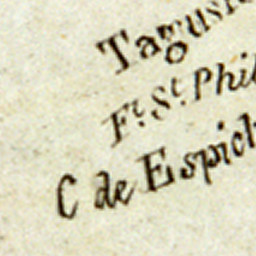 Tagusri
Ft. St. Phil
C de Espich